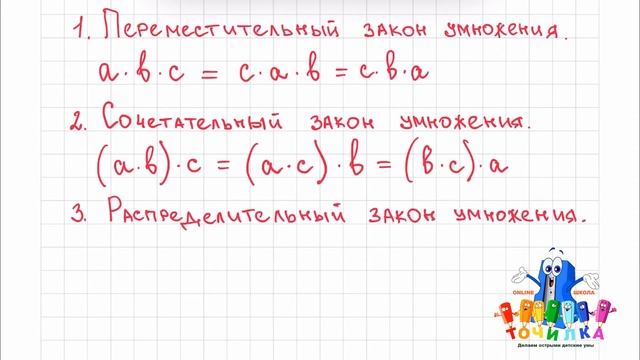 1. Переместительный закон умножения.
a·b·c = c·a·b = c·b·a
2. Сочетательный закон умножения.
(a·b)·c = (a·c)·b = (b·c)·a
3. Распределительный закон умножения.
ONLINE ШКОЛА
ТОЧИЛКА
Делаем острыми детские умы